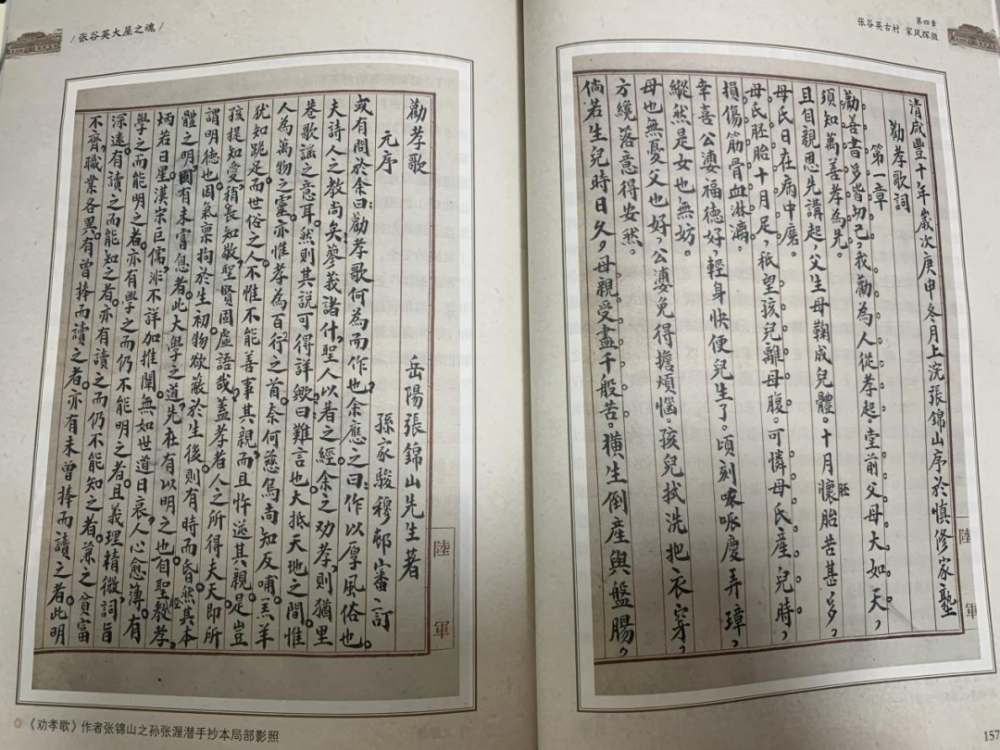 /张谷英大屋之魂/
勸孝歌 岳陽張錦山先生著
元序 孫家駿穆邨審訂
或有問於余曰：勸孝歌何為而作也，余應之曰：作以厚風俗也。
夫詩人之教尚矣，蓼莪諸什，聖人以者之經。余之劝孝，則猶里
巷歌謠之意耳。然則其說可得詳歟。曰難言也。大抵天地之間，惟
人為萬物之靈，亦惟孝為百行之首。奈何慈烏尚知反哺，羔羊
犹知跪足。而世俗之人，不惟不能善事其親，而且忤逆其親。是豈
孩提知愛，稍長知敬，聖賢圖虛語哉，蓋孝者人之所得夫天即所
謂明德也。因氣稟拘於生初，物欲蔽於生後，則有時而昏。然其本
體之明，固有未嘗息者。此大學之道，先在有以明之也。自聖教孝經
炳若日星，漢宋巨儒，非不詳加推闡。無如世道日衰，人心愈薄。有
學之而能明之者。亦有學之而仍不能明之者。且義理精微，詞旨
深遠。有讀之而能知之者。亦有讀之而仍不能知之者。兼之貧富
不齊，職業各異。有曾捧而讀之者。亦有未曾捧而讀之者。此明
陸軍
《劝孝歌》作者张锦山之孙张渥潜手抄本局部影照
第四章
张谷英古村 家风探微
清咸豐十年歲次庚申冬月上浣張錦山序於慎修家塾
勸孝歌詞
第一章
勸善書多皆切己，我勸為人從孝起。堂前父母大如天，
須知萬善孝為先。
且自親恩先講起，父生母鞠成兒體。十月懷胎苦甚多，
母氏日在病中磨。
母氏胚胎十月足，祇望孩兒離母腹。可憐母氏產兒時，
損傷筋骨血淋漓。
幸喜公婆福德好，輕身快便兒生了。頃刻喙哌慶弄璋，
縱然是女也無妨。
母也無憂父也好，公婆免得擔煩惱。孩兒拭洗把衣穿，
方纔落意得安然。
倘若生兒時日久，母親受盡千般苦。橫生倒產與盤腸，
陸軍
157